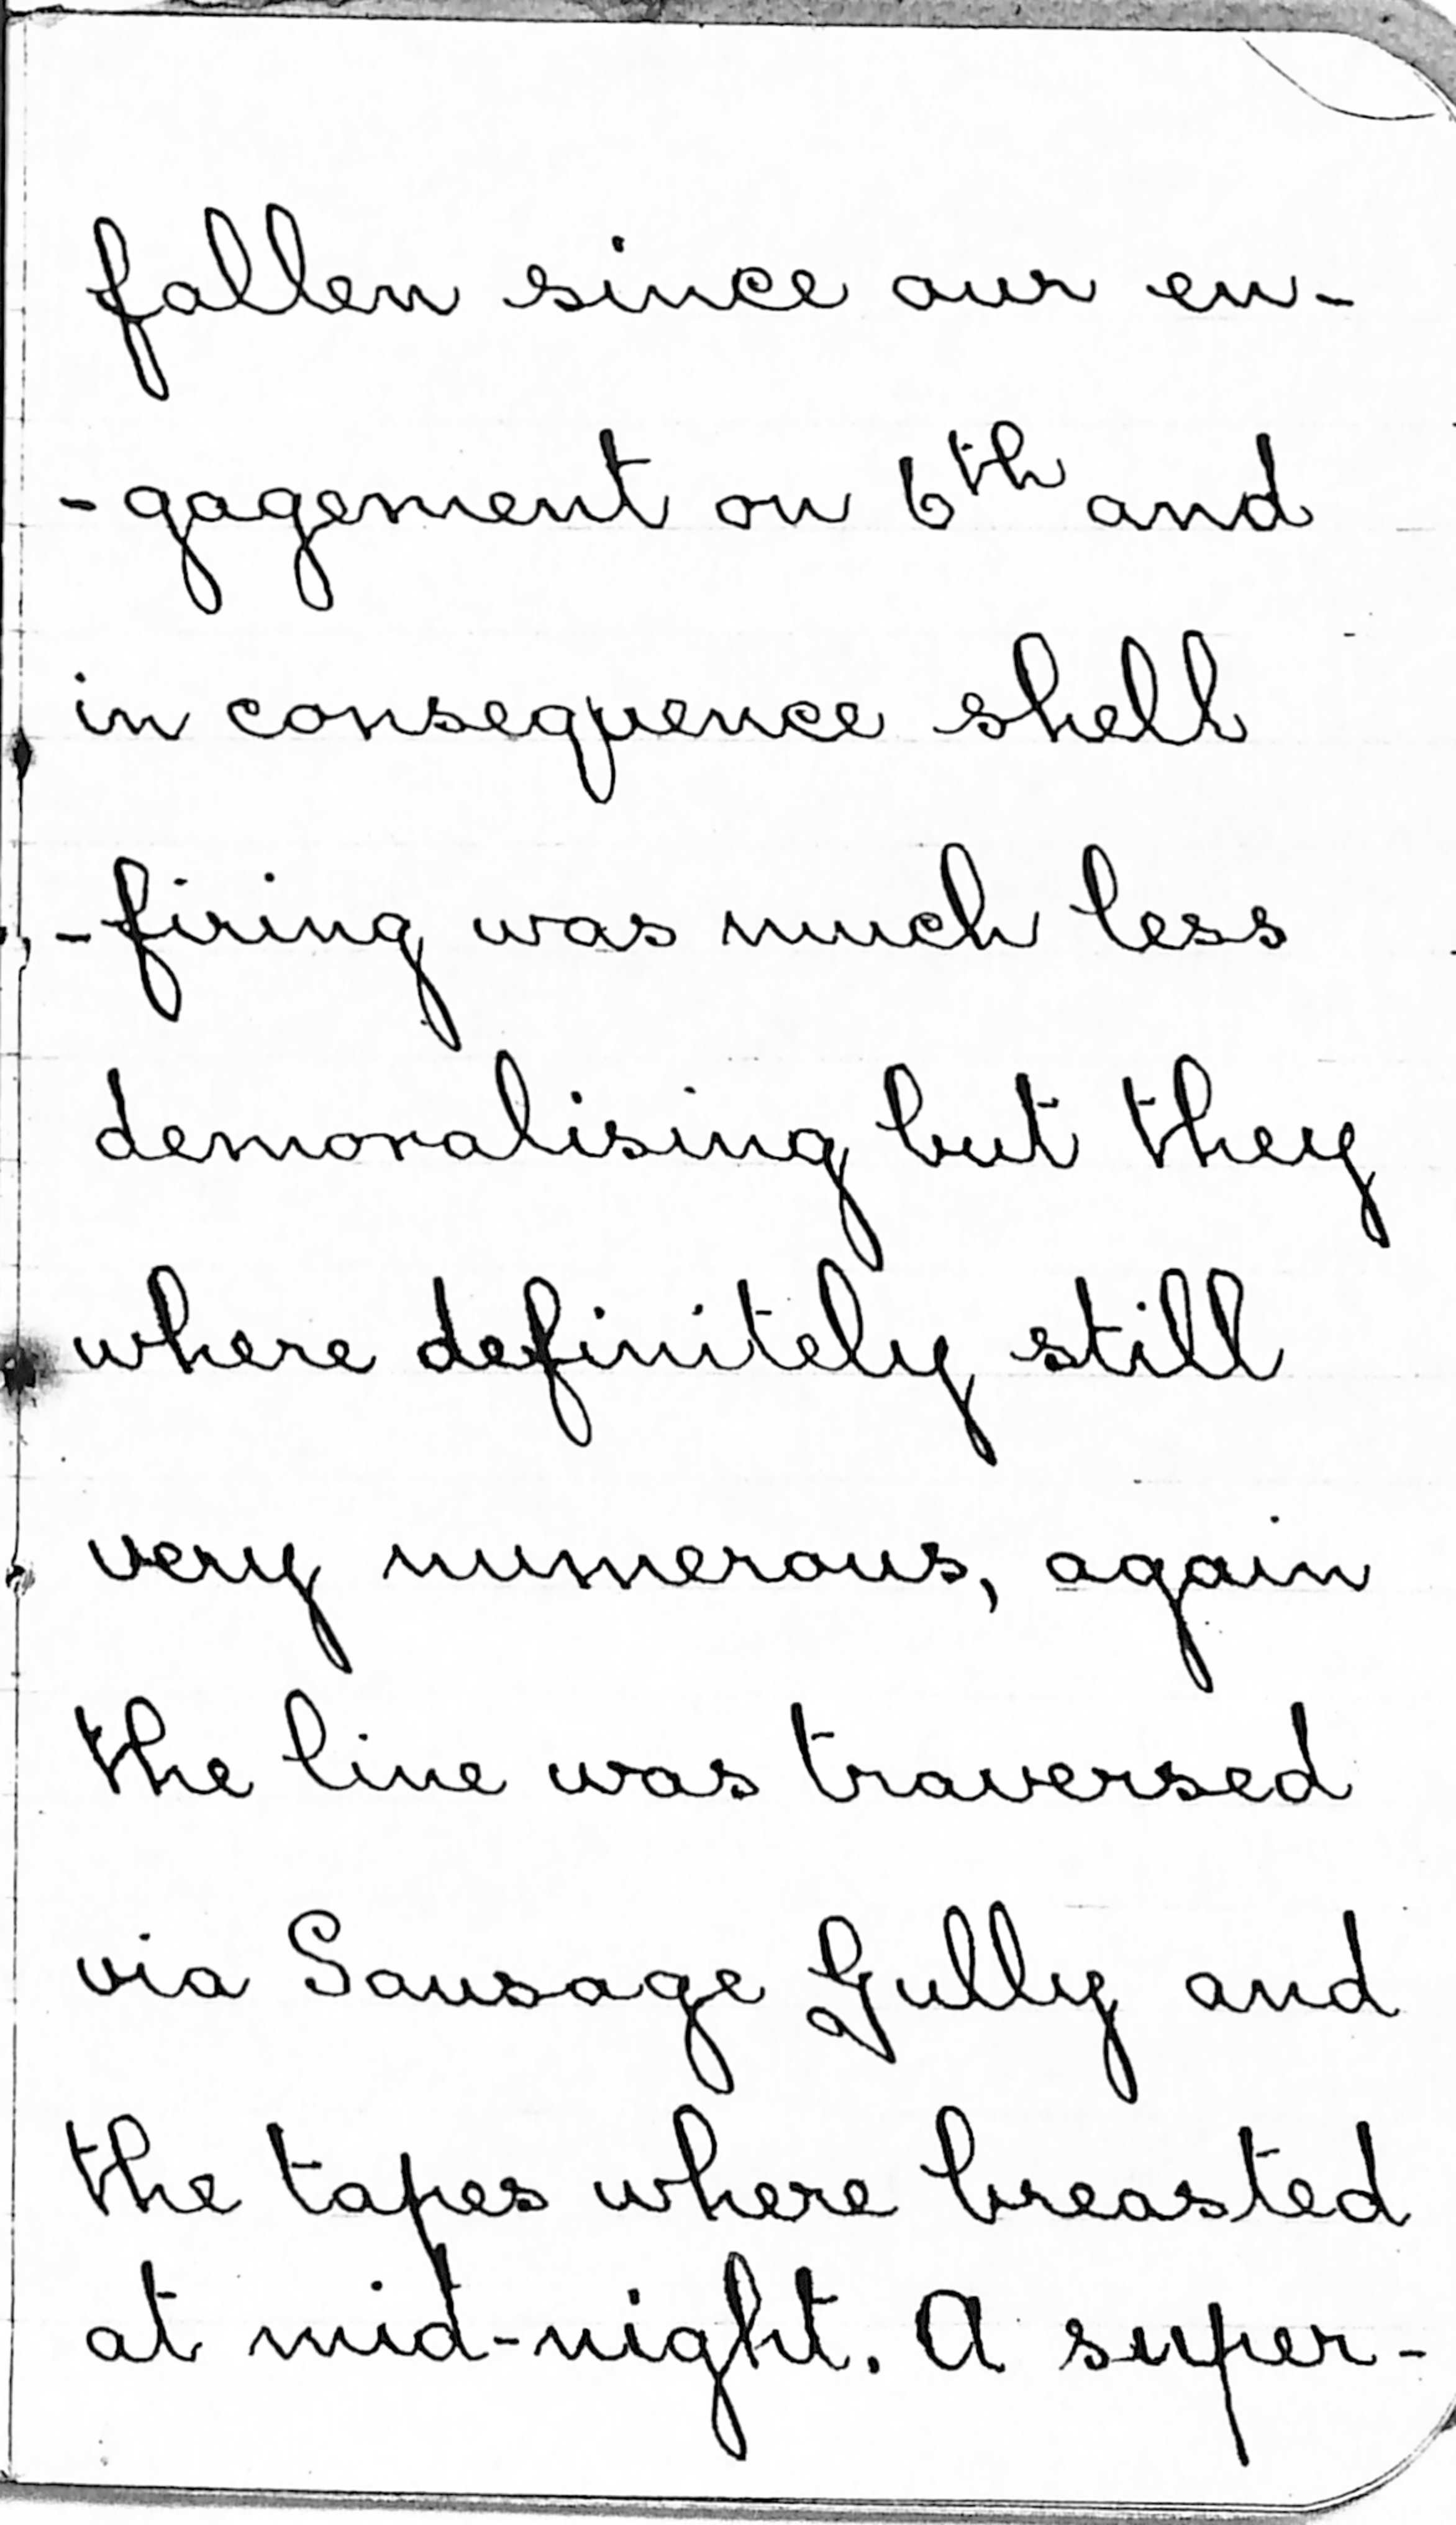 fallen since our en-
-gagement on 6th and
in consequence shell
-firing was much less
demoralising but they
where definitely still
very numerous, again
the line was traversed
via Sausage Gully and
the tapes where breasted
at mid-night. A super-